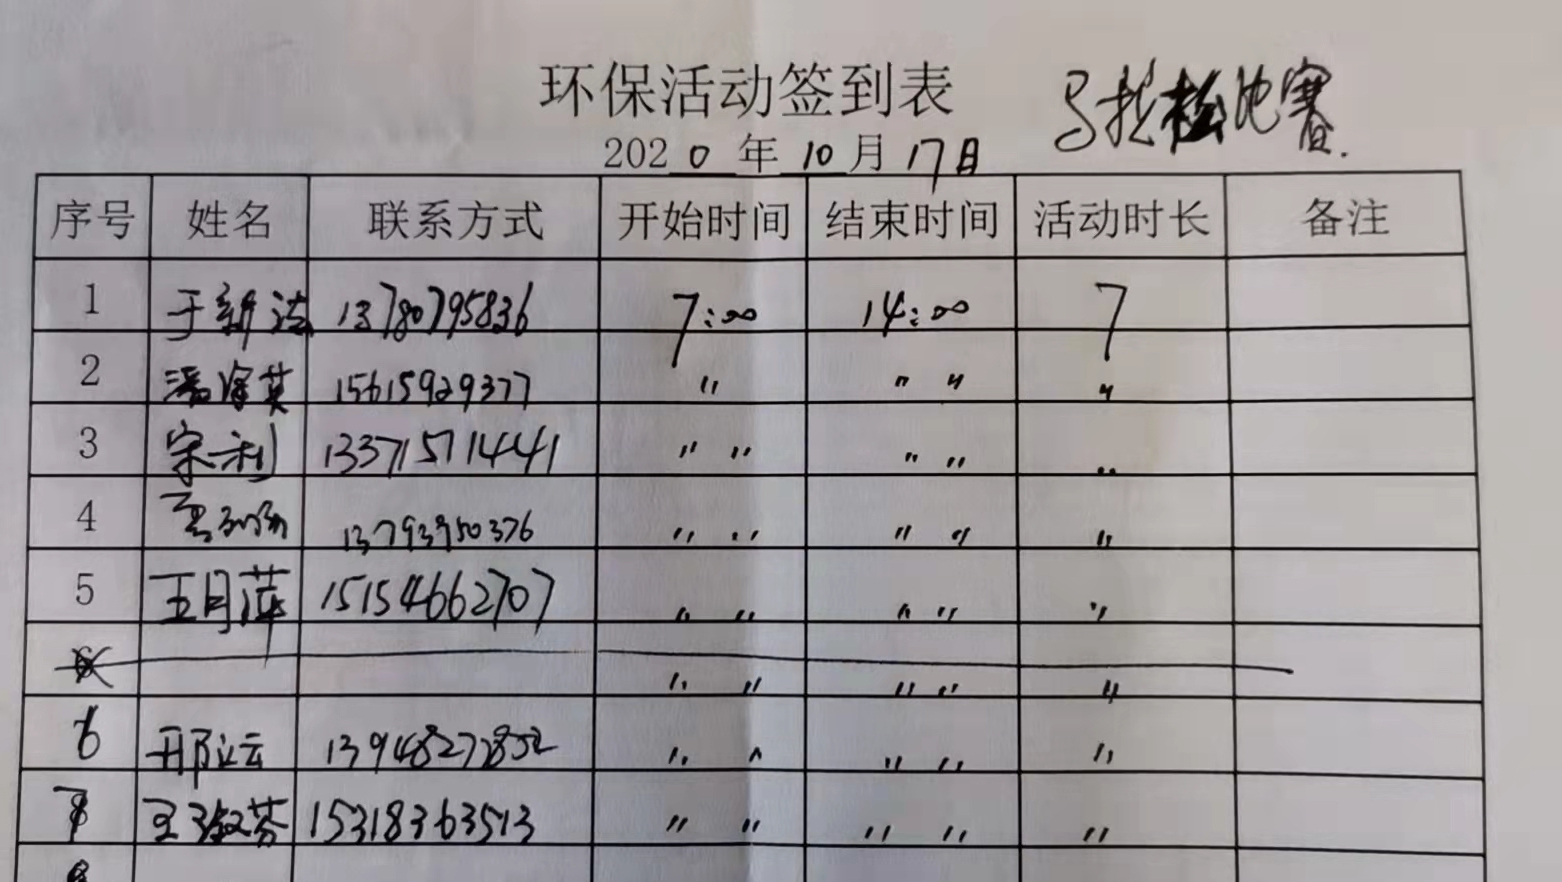 环保活动签到表 马拉松比赛.
2020年10月17日
序号 姓名 联系方式 开始时间 结束时间 活动时长 备注
1 于新法 13780795836 7:00 14:00 7
2 潘 英 15615929377 〃 〃 〃 〃
3 宋利 13371571441 〃 〃 〃 〃 〃
4 13793950376 〃 〃 〃 〃 〃
5 王月萍 15154662707 〃 〃 〃 〃 〃
〃 〃 〃 〃 〃
6 邢运 13948272852 〃 〃 〃 〃 〃
7 王淑芬 15318363513 〃 〃 〃 〃 〃